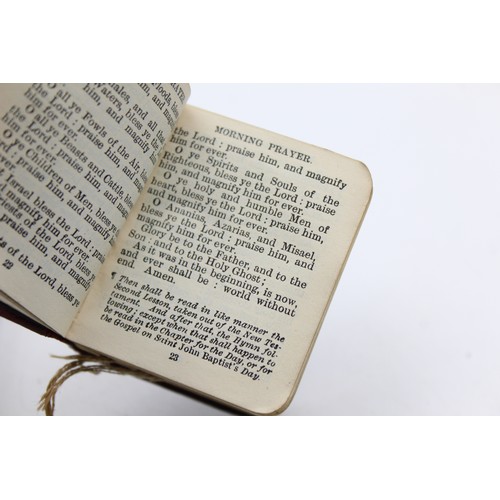 Floods,
Whales, and all that
Waters, bless ye the
him, and magnify
O all ye Fowls of the Air, bless
the Lord : praise him, and magnify
him for ever.
O all ye Beasts and Cattle, bless ye
the Lord : praise him, and magnify
him for ever.
O ye Children of Men, bless ye
Lord : praise him, and magnify
for ever.
Israel bless the Lord : praise
magnify him for ever.
Priests of the Lord, bless ye
praise him, and magnify
of the Lord, bless ye
22
MORNING PRAYER.
the Lord : praise him, and magnify
him for ever.
O ye Spirits and Souls of the
Righteous, bless ye the Lord : praise
him, and magnify him for ever.
O ye holy and humble Men of
heart, bless ye the Lord : praise him,
and magnify him for ever.
O Ananias, Azarias, and Misael,
bless ye the Lord : praise him, and
magnify him for ever.
Glory be to the Father, and to the
Son : and to the Holy Ghost;
As it was in the beginning, is now,
and ever shall be : world without
end. Amen.
¶ Then shall be read in like manner the
Second Lesson, taken out of the New Tes-
tament. And after that, the Hymn fol-
lowing; except when that shall happen to
be read in the Chapter for the Day, or for
the Gospel on Saint John Baptist's Day.
23